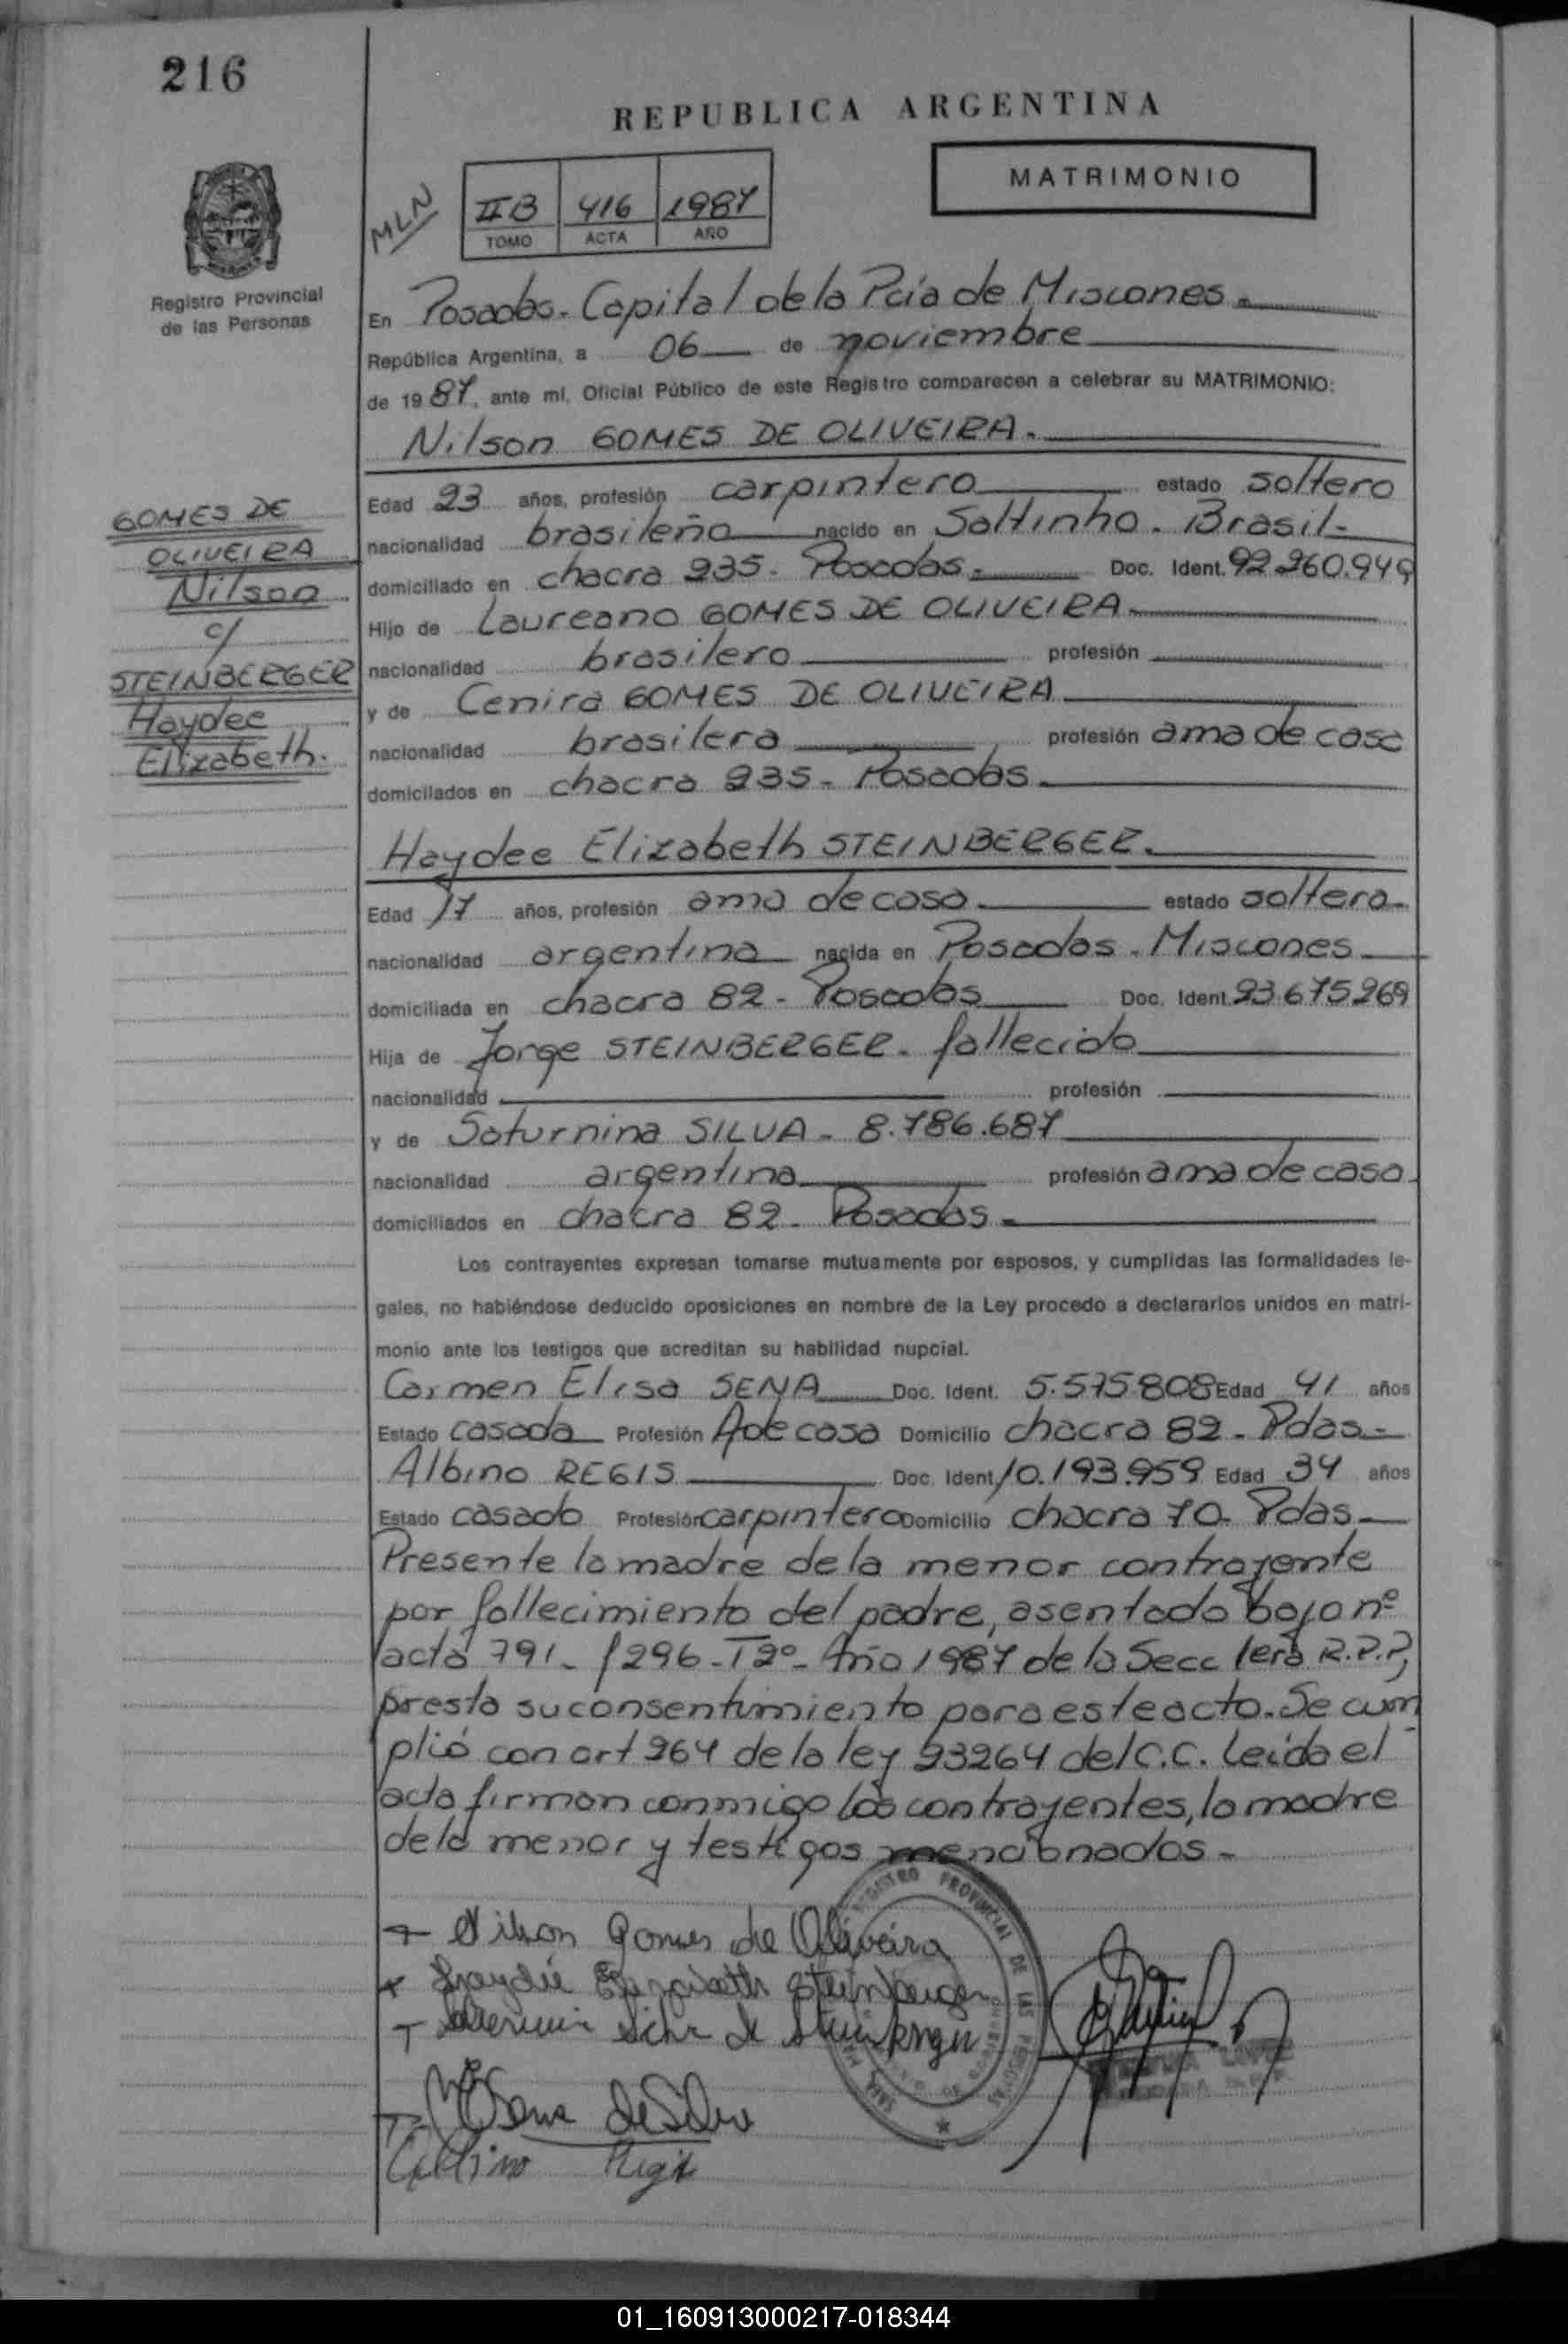 216
REPUBLICA ARGENTINA
MATRIMONIO
MLN
IIB 416 1987
TOMO ACTA AÑO
Registro Provincial
de las Personas
En Posadas. Capital de la Pcia de Misiones.
República Argentina, a 06 de noviembre
de 1987, ante mí, Oficial Público de este Registro comparecen a celebrar su MATRIMONIO:
Nilson GOMES DE OLIVEIRA.
Edad 23 años, profesión carpintero estado soltero
nacionalidad brasileño nacido en Saltinho. Brasil-
domiciliado en chacra 235. Posadas. Doc. Ident. 92.260.949
Hijo de Laureano GOMES DE OLIVEIRA.
nacionalidad brasilero profesión
y de Cenira GOMES DE OLIVEIRA
nacionalidad brasilera profesión ama de casa
domicilados en chacra 235- Posadas.
GOMES DE
OLIVEIRA
Nilson
c/
STEINBERGER
Haydee
Elizabeth.
Haydee Elizabeth STEINBERGER.
Edad 17 años, profesión ama de casa. estado soltera.
nacionalidad argentina nacida en Posadas. Misiones
domiciliada en chacra 82- Posadas Doc. Ident. 23.675.269
Hija de Jorge STEINBERGER. fallecido
nacionalidad profesión
y de Saturnina SILVA- 8.786.687
nacionalidad argentina profesión ama de casa.
domiciliados en chacra 82. Posadas.
Los contrayentes expresan tomarse mutuamente por esposos, y cumplidas las formalidades le-
gales, no habiéndose deducido oposiciones en nombre de la Ley procedo a declararlos unidos en matri-
monio ante los testigos que acreditan su habilidad nupcial.
Carmen Elisa SENA Doc. Ident. 5.575.808 Edad 41 años
Estado casada Profesión A de casa Domicilio chacra 82- Pdas-
Albino REGIS Doc. Ident. 10.193.959 Edad 34 años
Estado casado Profesión carpintero Domicilio chacra 70- Pdas.
Presente la madre de la menor contrayente
por fallecimiento del padre, asentado bajo nº
acta 791- f 296- Tº 2º- Año 1987 de la Secc 1era R.P.P,
presta su consentimiento para este acto. Se cum
plió con art 264 de la ley 23264 del C.C. Leida el
acta firman conmigo los contrayentes, la madre
de la menor y testigos mencionados-
Nilson Gomes de Oliveira
Haydée Elizabeth Steinberger
Silva de Steinberger
Sena de Silva
Albino Regis
REGISTRO PROVINCIAL DE LAS PERSONAS
01_160913000217-018344